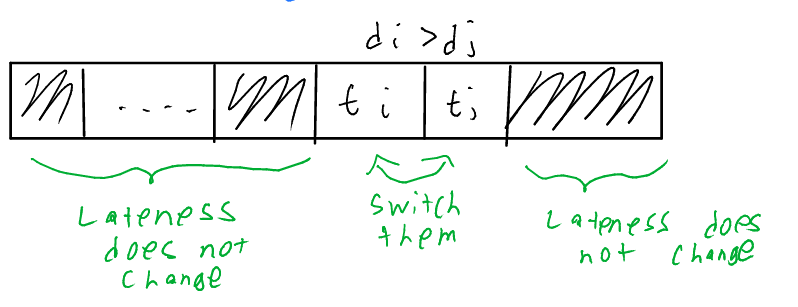 di > dj
.... ti tj
Lateness
does not
change
switch
them
Lateness does
not change